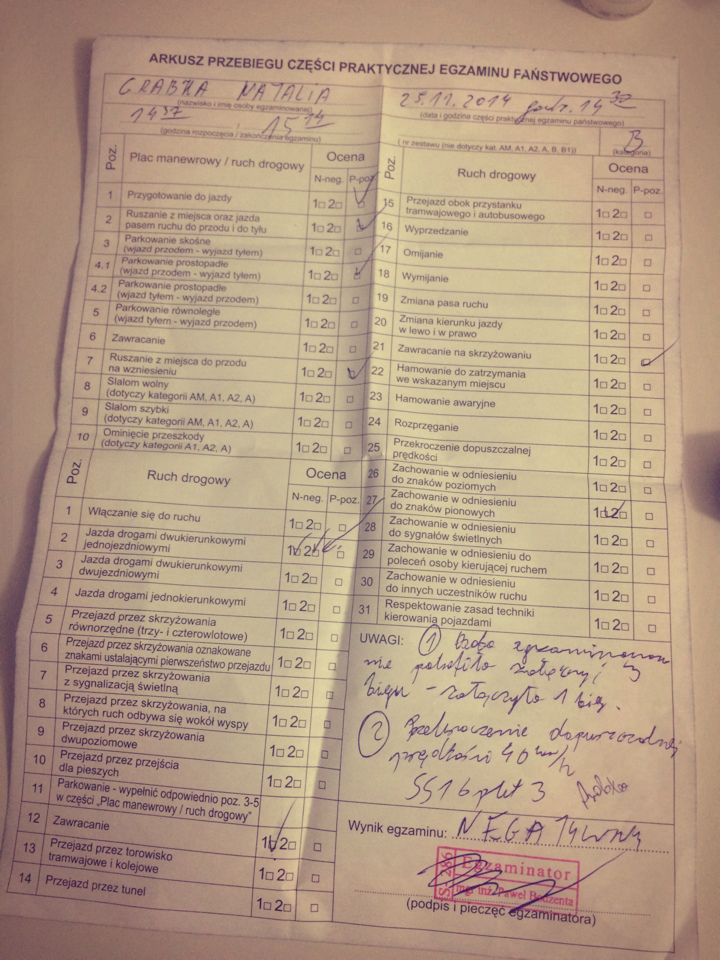 ARKUSZ PRZEBIEGU CZĘŚCI PRAKTYCZNEJ EGZAMINU PAŃSTWOWEGO
GRABKA NATALIA
(nazwisko i imię osoby egzaminowanej)
25.11.2014 godz. 14 30
(data i godzina części praktycznej egzaminu państwowego)
14 37 15 14
(godzina rozpoczęcia / zakończenia egzaminu)
B
( nr zestawu (nie dotyczy kat. AM, A1, A2, A, B, B1)) (kategoria)
Poz. Plac manewrowy / ruch drogowy Ocena
N-neg. P-poz.
1 Przygotowanie do jazdy 1□ 2□
2 Ruszanie z miejsca oraz jazda
pasem ruchu do przodu i do tyłu 1□ 2□
3 Parkowanie skośne
(wjazd przodem - wyjazd tyłem) 1□ 2□ □
4.1 Parkowanie prostopadłe
(wjazd przodem - wyjazd tyłem) 1□ 2□
4.2 Parkowanie prostopadłe
(wjazd tyłem - wyjazd przodem) 1□ 2□ □
5 Parkowanie równoległe
(wjazd tyłem - wyjazd przodem) 1□ 2□ □
6 Zawracanie 1□ 2□ □
7 Ruszanie z miejsca do przodu
na wzniesieniu 1□ 2□
8 Slalom wolny
(dotyczy kategorii AM, A1, A2, A) 1□ 2□ □
9 Slalom szybki
(dotyczy kategorii AM, A1, A2, A) 1□ 2□ □
10 Ominięcie przeszkody
(dotyczy kategorii A1, A2, A) 1□ 2□ □
Poz. Ruch drogowy Ocena
N-neg. P-poz.
1 Włączanie się do ruchu 1□ 2□ □
2 Jazda drogami dwukierunkowymi
jednojezdniowymi 1□ 2□ □
3 Jazda drogami dwukierunkowymi
dwujezdniowymi 1□ 2□ □
4 Jazda drogami jednokierunkowymi 1□ 2□ □
5 Przejazd przez skrzyżowania
równorzędne (trzy- i czterowlotowe) 1□ 2□ □
6 Przejazd przez skrzyżowania oznakowane
znakami ustalającymi pierwszeństwo przejazdu 1□ 2□ □
7 Przejazd przez skrzyżowania
z sygnalizacją świetlną 1□ 2□ □
8 Przejazd przez skrzyżowania, na
których ruch odbywa się wokół wyspy 1□ 2□ □
9 Przejazd przez skrzyżowania
dwupoziomowe 1□ 2□ □
10 Przejazd przez przejścia
dla pieszych 1□ 2□ □
11 Parkowanie - wypełnić odpowiednio poz. 3-5
w części „Plac manewrowy / ruch drogowy"
12 Zawracanie 1□ 2□ □
13 Przejazd przez torowisko
tramwajowe i kolejowe 1□ 2□ □
14 Przejazd przez tunel 1□ 2□ □
Poz. Ruch drogowy Ocena
N-neg. P-poz.
15 Przejazd obok przystanku
tramwajowego i autobusowego 1□ 2□ □
16 Wyprzedzanie 1□ 2□ □
17 Omijanie 1□ 2□ □
18 Wymijanie 1□ 2□ □
19 Zmiana pasa ruchu 1□ 2□ □
20 Zmiana kierunku jazdy
w lewo i w prawo 1□ 2□ □
21 Zawracanie na skrzyżowaniu 1□ 2□ □
22 Hamowanie do zatrzymania
we wskazanym miejscu 1□ 2□ □
23 Hamowanie awaryjne 1□ 2□ □
24 Rozprzęganie 1□ 2□ □
25 Przekroczenie dopuszczalnej
prędkości 1□ 2□ □
26 Zachowanie w odniesieniu
do znaków poziomych 1□ 2□ □
27 Zachowanie w odniesieniu
do znaków pionowych 1□ 2□ □
28 Zachowanie w odniesieniu
do sygnałów świetlnych 1□ 2□ □
29 Zachowanie w odniesieniu do
poleceń osoby kierującej ruchem 1□ 2□ □
30 Zachowanie w odniesieniu
do innych uczestników ruchu 1□ 2□ □
31 Respektowanie zasad techniki
kierowania pojazdami 1□ 2□ □
UWAGI: 1 Osoba egzaminowana
nie potrafiła załączyć 3
biegu - załączyła 1 bieg.
2 Przekroczenie dopuszczalnej
prędkości 40 km/h
§516 pkt 3
Wynik egzaminu: NEGATYWNY
Egzaminator
mgr inż. Paweł Bodzenta
(podpis i pieczęć egzaminatora)